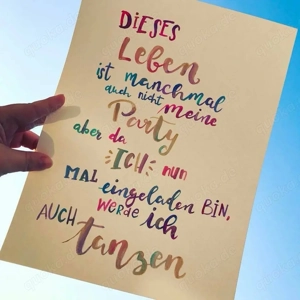 DIESES
Leben
ist manchmal
auch nicht meine
Party
aber da
ICH nun
MAL eingeladen BIN,
werde ich
AUCH tanzen